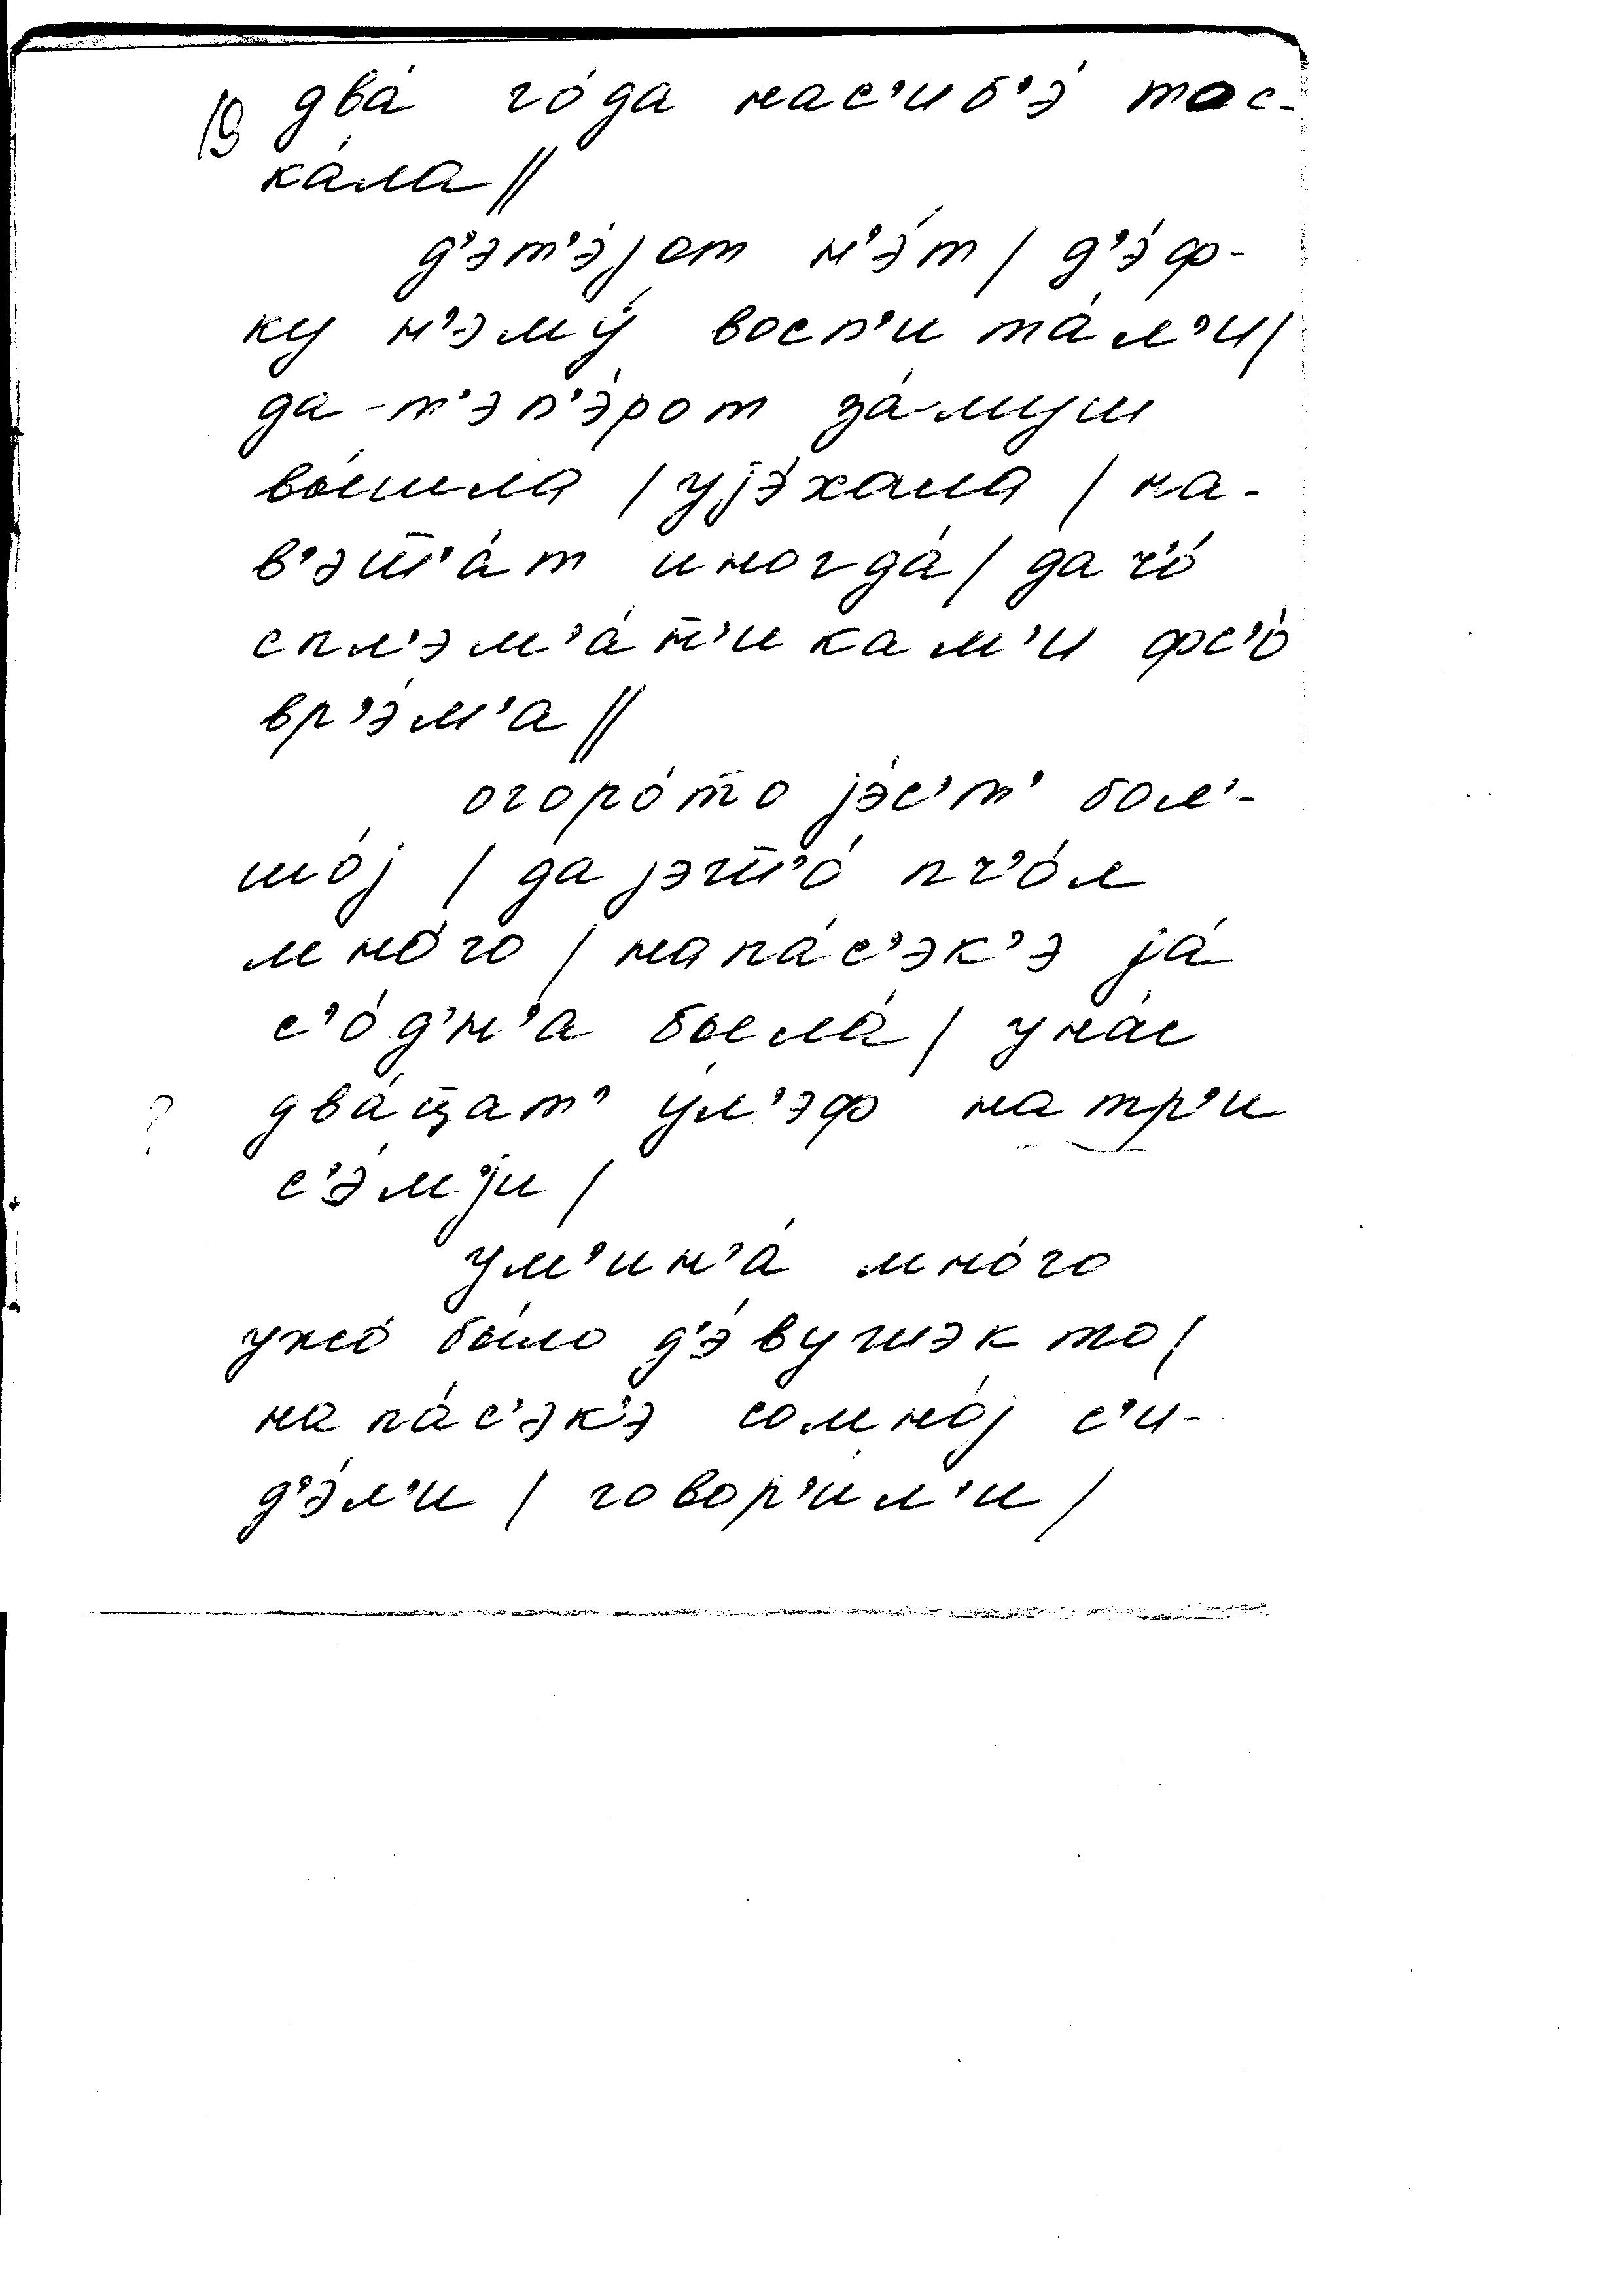 19 два́ го́да нас'иб'э́ тос-
ка́ла //
д'эт'э́jот н'э́т / д'э́ф-
ку н'эму́ восп'ита́л'и /
да-т'эп'э́рот за́муш
вы́шла / уjэ́хала / на-
в'эш̄'а́т иногда́ / да ч'о́
спл'эм'а́н̄'икам'и фс'о́
вр'э́м'а //
огоро́т̄о jэ́с'т' бол'-
шо́j / да jэш̄'о́ пч'о́л
мно́го / напа́с'эк'э jа́
с'о́д'н'а была́ / уна́с
два́ц̄ат' у́л'эф на тр'и
? с'э́м'jи /
ум'ин'а́ мно́го
ужо́ бы́ло д'э́вушэк то /
на па́с'эк'э сомно́j с'и-
д'э́л'и / говор'и́л'и /